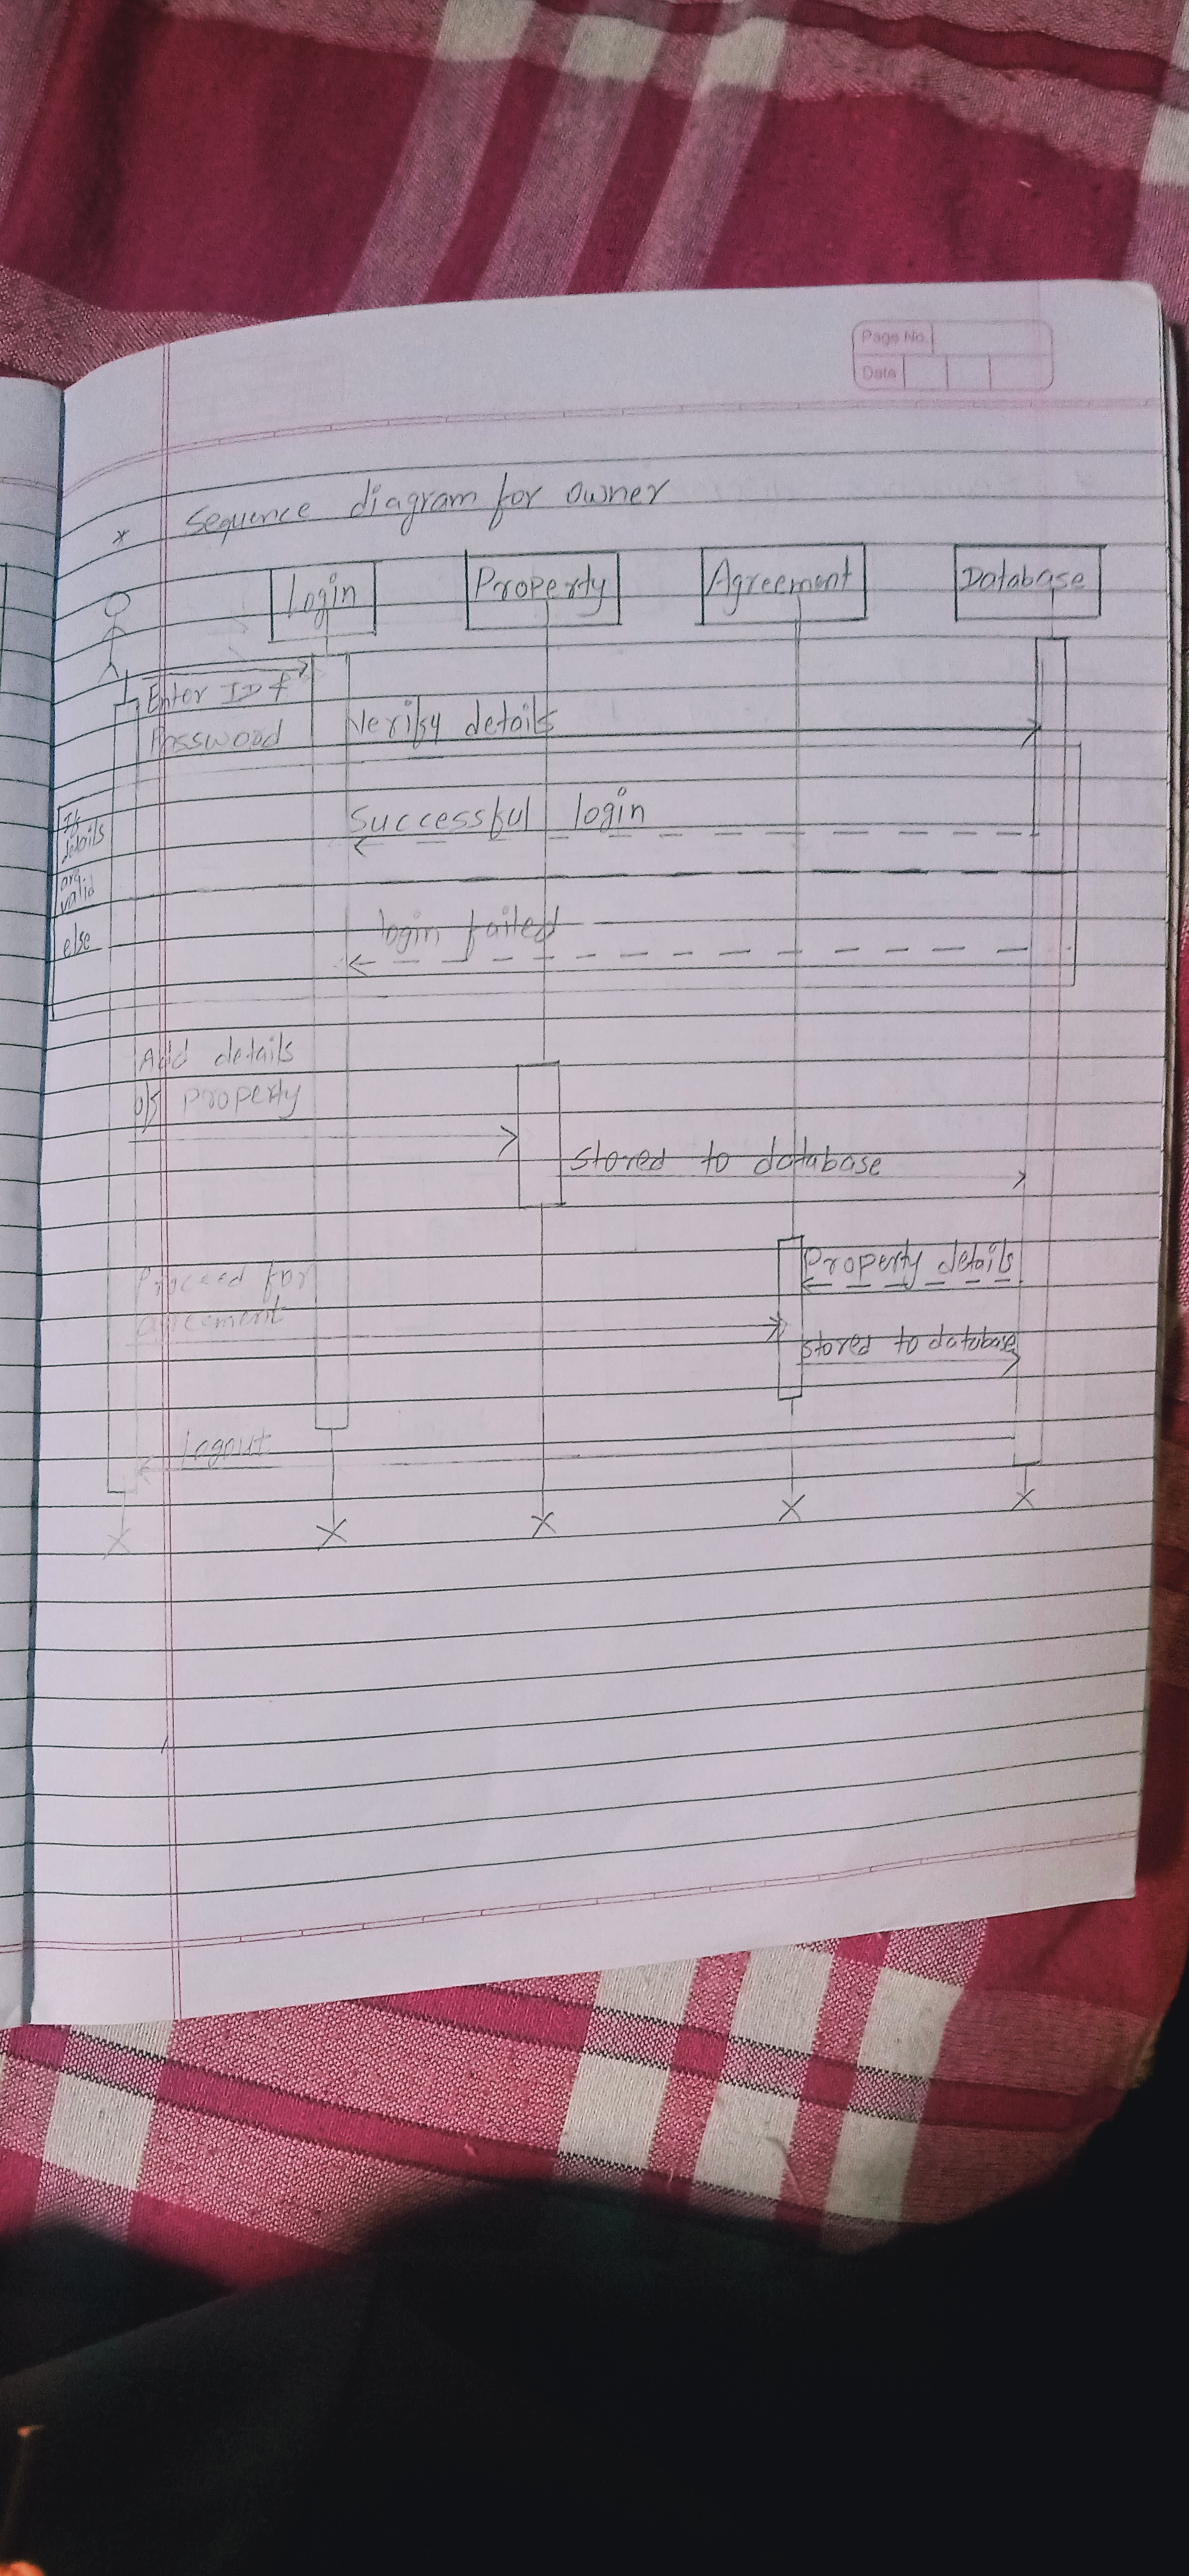 Page No.
Date
* Sequence diagram for owner
Login
Property
Agreement
Database
Enter ID &
Password
Verify details
If
details
are
valid
Successful login
else
login failed
Add details
of property
stored to database
Property details
Proceed for
agreement
stored to database
Logout